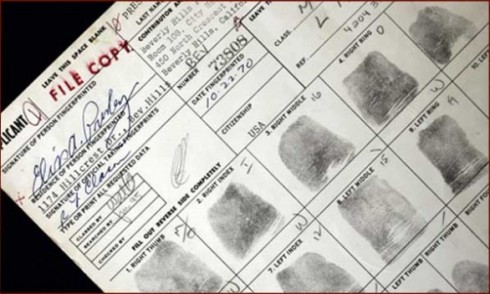 LEAVE THIS SPACE BLANK
FILE COPY
LAST NAM
CONTRIBUTOR
Beverly Hills
Room 108, City H
450 North Crescent
Beverly Hills, Califor
BEV
NUMBER 73808
DATE FINGERPRINTED
10-22-70
CITIZENSHIP
USA
LEAVE T
CLASS.
REF.
APPLICANT
SIGNATURE OF PERSON FINGERPRINTED
Elvis A Presley
RESIDENCE OF PERSON FINGERPRINTED
1174 Hillcrest Rd., Bev. Hills
SIGNATURE OF OFFICIAL TAKING FINGERPRINTS
TYPE OR PRINT ALL REQUESTED DATA
CLASSED BY
SEARCHED BY
CHECKED BY
FILL OUT REVERSE SIDE COMPLETELY
1. RIGHT THUMB
2. RIGHT INDEX
3. RIGHT MIDDLE
4. RIGHT RING
7. LEFT INDEX
8. LEFT MIDDLE
9. LEFT RING
10. LEFT
LEFT THUMB
RIGHT THUMB